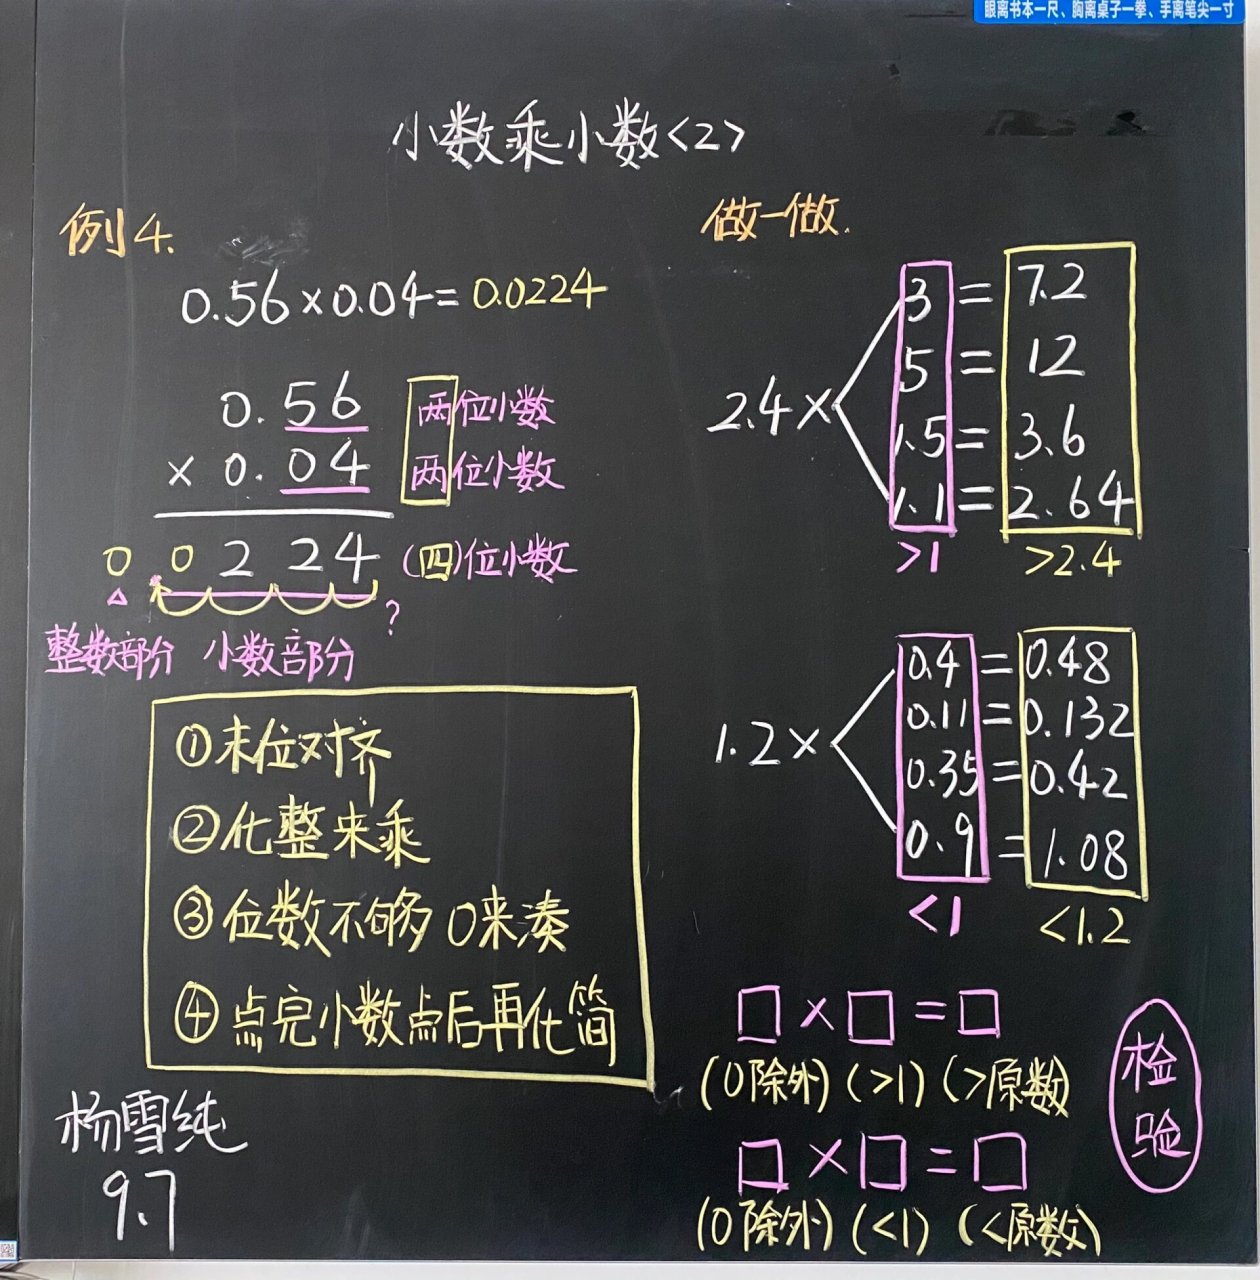 眼离书本一尺、胸离桌子一拳、手离笔尖一寸
小数乘小数<2>
例4.
0.56×0.04=0.0224
0.56 两位小数
×0.04 两位小数
0 0 2 2 4 (四)位小数
?
整数部分 小数部分
①末位对齐
②化整来乘
③位数不够0来凑
④点完小数点后再化简
杨雪纯
9.7
做一做.
2.4×
3=7.2
5=12
1.5=3.6
1.1=2.64
>1 >2.4
1.2×
0.4=0.48
0.11=0.132
0.35=0.42
0.9=1.08
<1 <1.2
□×□=□
(0除外)(>1)(>原数)
□×□=□
(0除外)(<1)(<原数)
检验